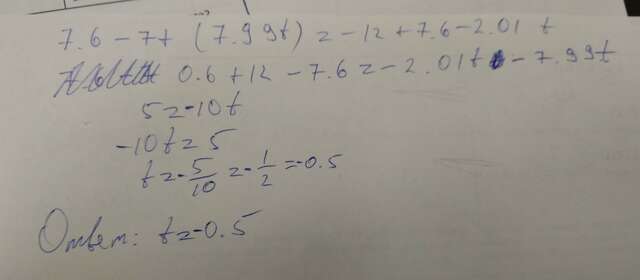 7.6-7+ (7.99t) = -12+7.6-2.01 t
0.6+12-7.6=-2.01t-7.99t
5=-10t
-10t=5
t=-5/10=-1/2=-0.5
Ответ: t=-0.5